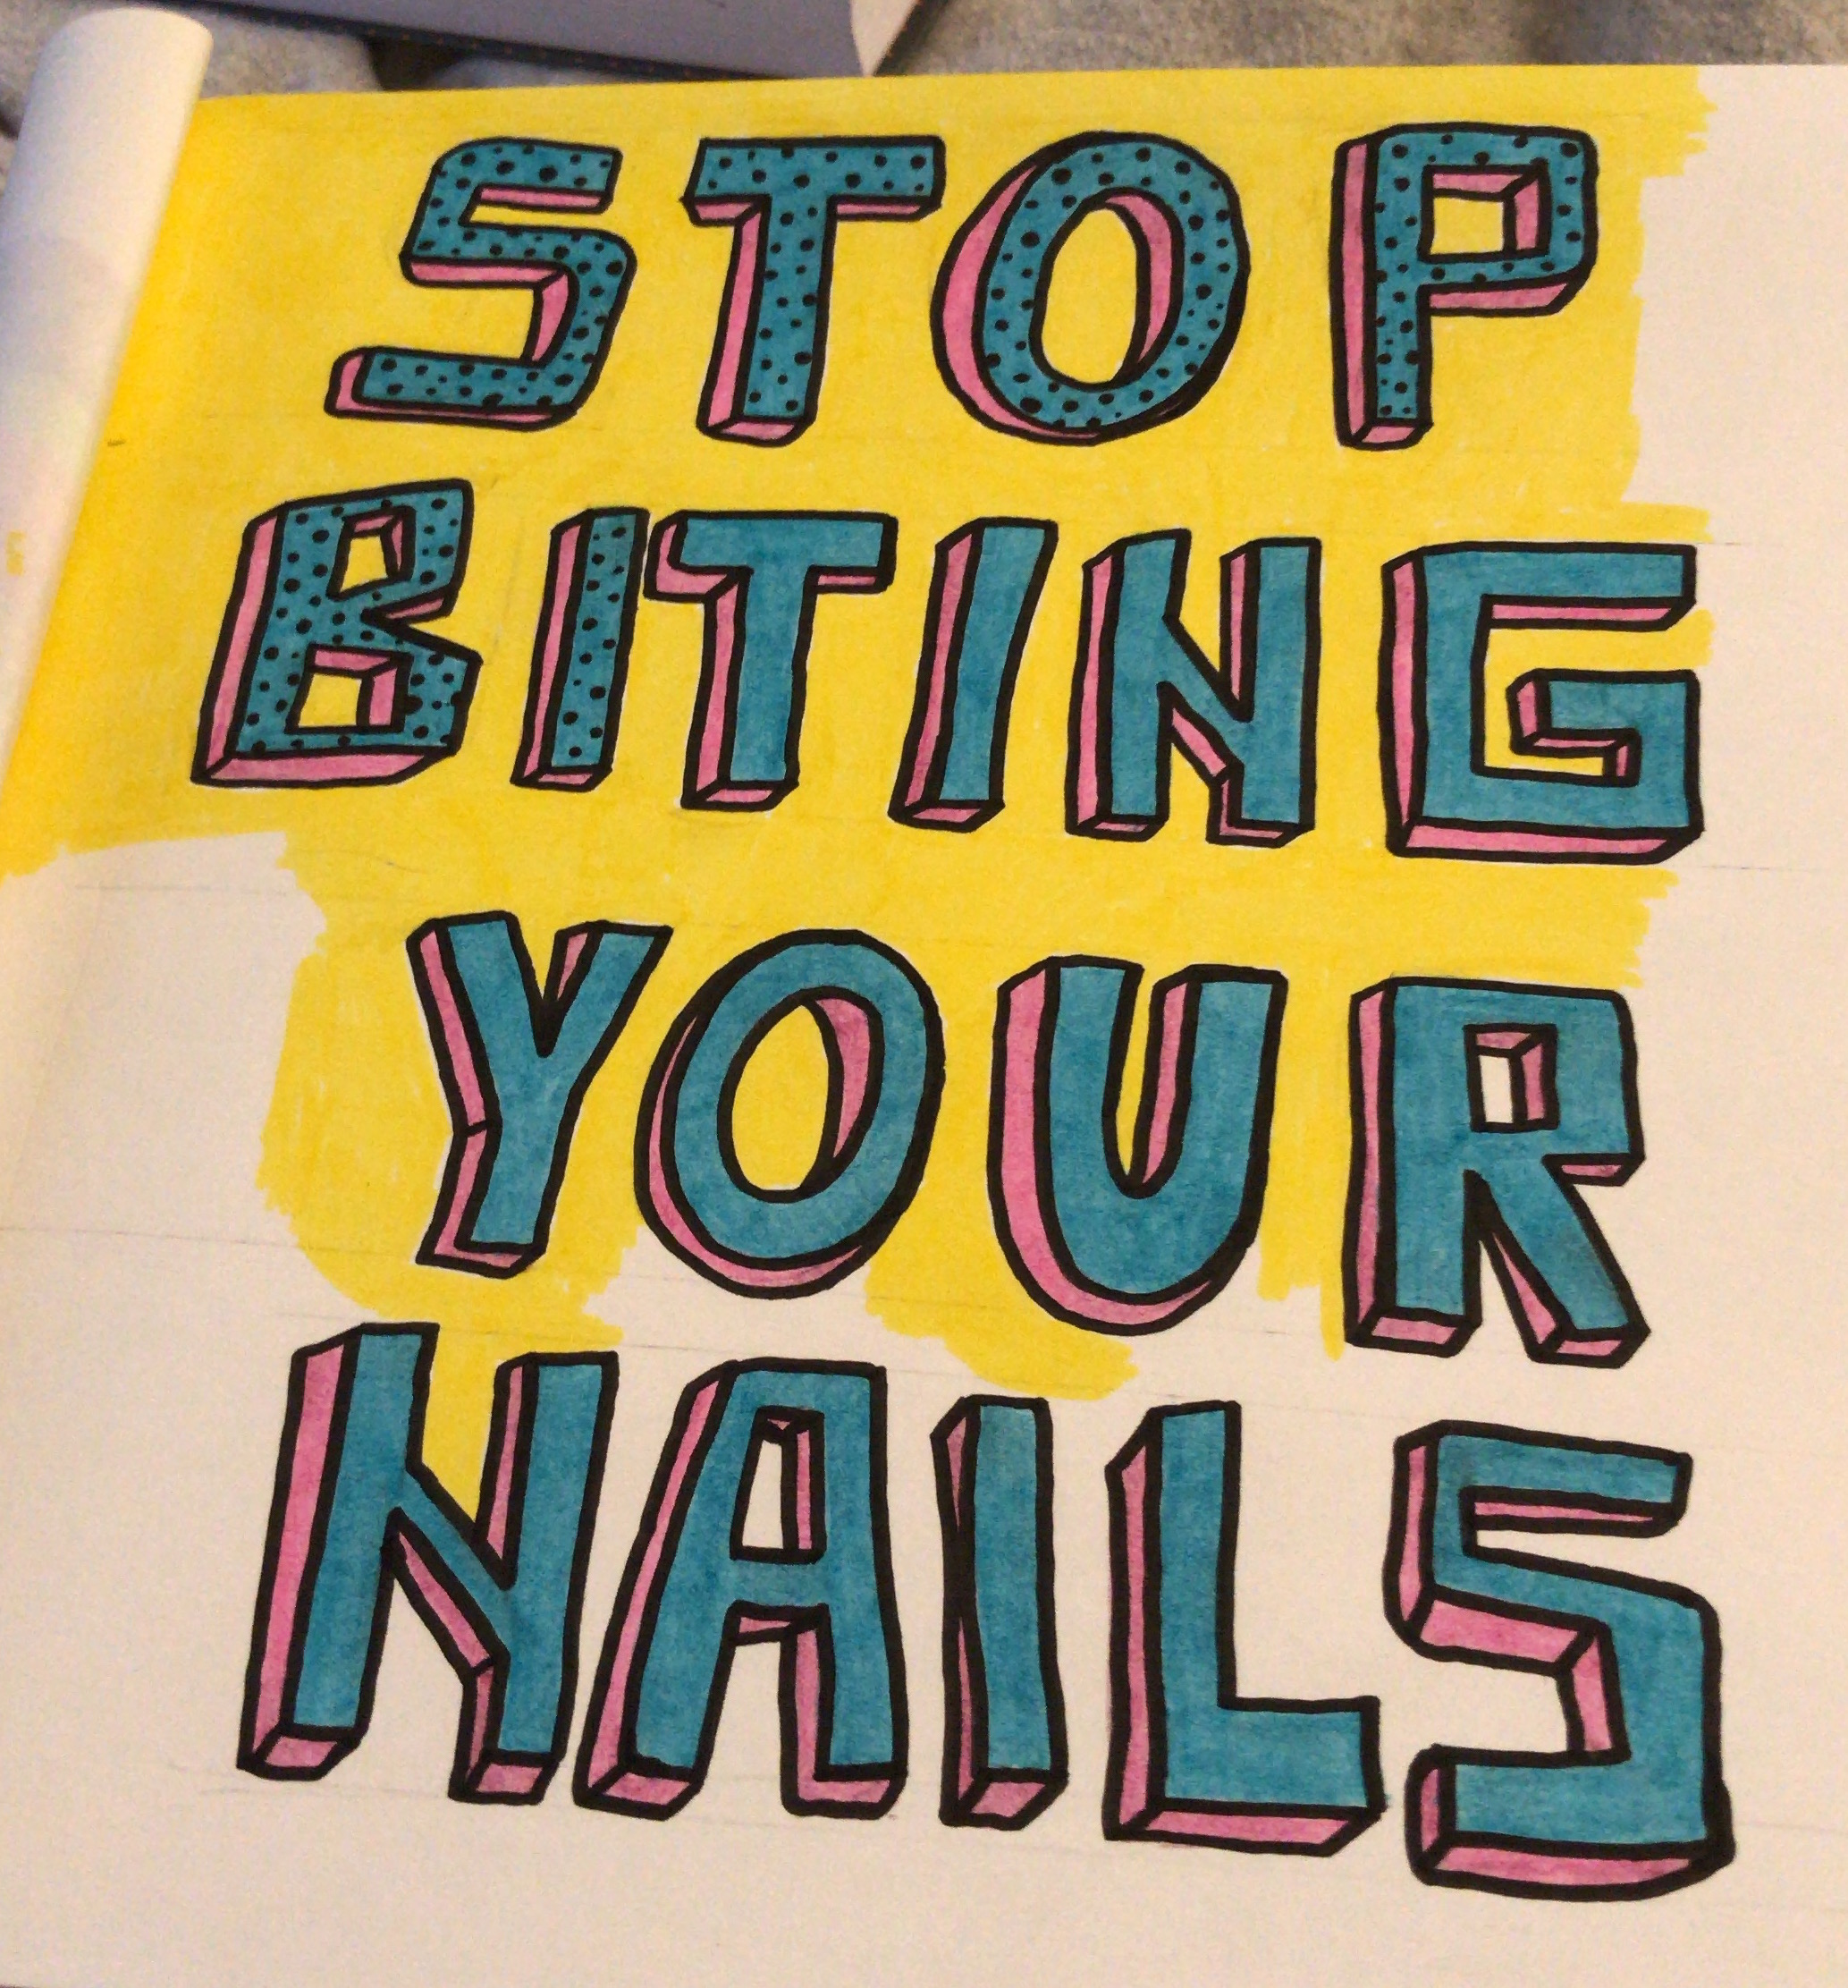 STOP
BITING
YOUR
NAILS